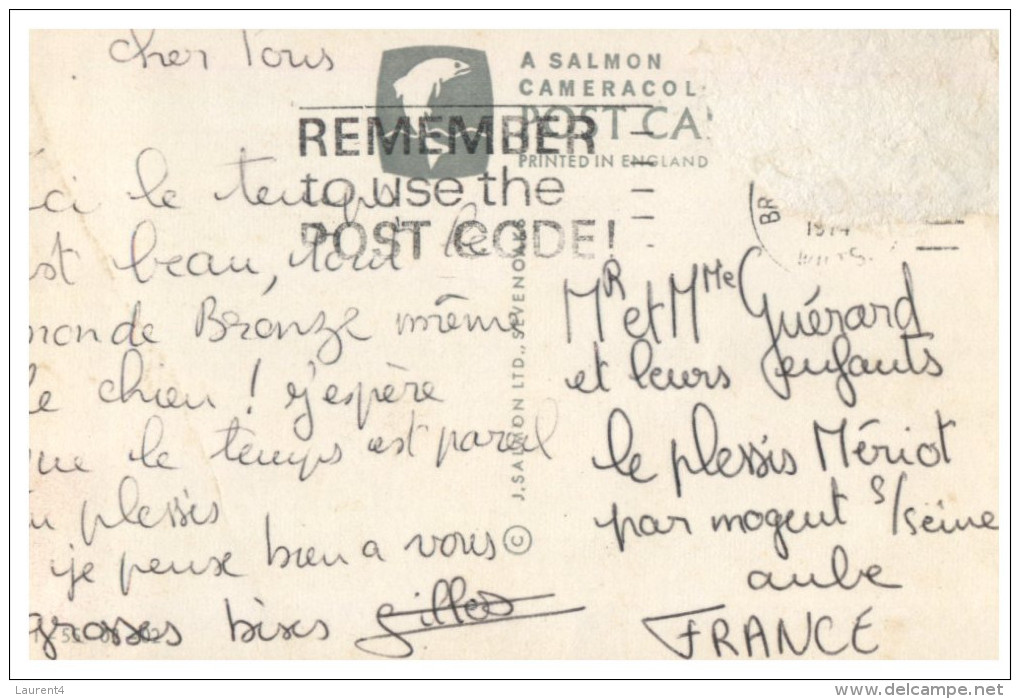 cher Tous
ici le temps
est beau, tout le
monde Bronze même
le chien ! j'espère
que le temps est pareil
au plessis
je pense bien a vous
grosses bises Gilles
A SALMON
CAMERACOL
POST CA
PRINTED IN ENGLAND
REMEMBER
to use the
POST CODE!
BR
WILTS.
© J. SALMON LTD., SEVENOAKS
Mr et Mme Guérard
et leurs enfants
le plessis Mériot
par nogent s/seine
aube
FRANCE
Laurent4
delcampe.net